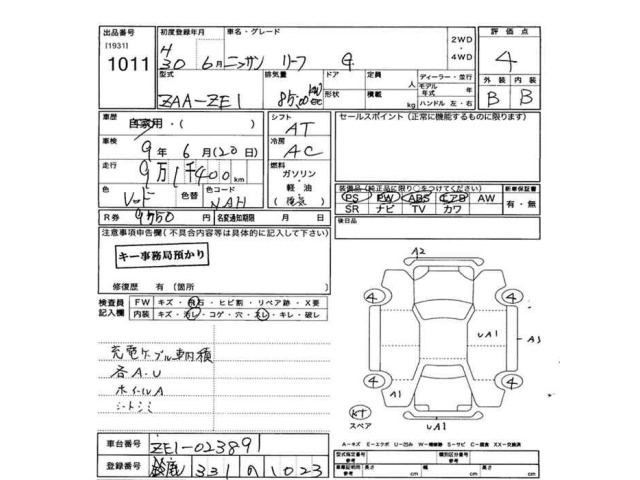 出品番号
[1931]
1011
初度登録年月
H
30 6月
車名・グレード
ニッサン リーフ G
2WD
・
4WD
評価点
4
外装 内装
B B
型式
ZAA-ZE1
排気量
85.00 KW
CC
ドア
形状
定員
人
積載
kg
ディーラー・並行
モデル
年式 年
ハンドル 左・右
車歴
自家用・( )
車検
9年 6月(20日)
走行
9万1千400km
色
色替
色コード
NAH
R券
9550円
名変通知期限 月 日
シフト
AT
冷房
AC
燃料
ガソリン
・
軽油
(電気)
セールスポイント(正常に機能するものに限ります)
装備品(純正品に限り○をつけてください)
PS PW ABS エアB AW
SR ナビ TV カワ
新車保証書
有・無
後日品
注意事項申告欄(不具合内容等は具体的に記入して下さい)
キー事務局預かり
修復歴 有(箇所 )
検査員
記入欄
FW キズ・飛石・ヒビ割・リペア跡・X要
内装 キズ・汚レ・コゲ・穴・スレ・キレ・破レ
充電ケーブル車内積
各A・U
ホイールA
シートシミ
A2
4 4
UA1
A3
4 4
A1
KT
スペア
UA1
A-キズ E-エクボ U-凹み W-補修跡 S-サビ C-腐食 XX-交換済
車台番号
ZE1-023891
登録番号
鈴鹿 331 の 1023
型式指定番号
参考
類別区分番号
参考
車庫証明用
参考
長さ cm 幅 cm 高さ cm